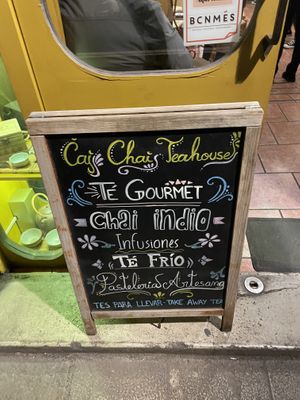 BCNMÉS
Čajs Chai's Teahouse
TÉ GOURMET
Chai indio
Infusiones
TÉ FRÍO
Pastelería Artesana
TES PARA LLEVAR - TAKE AWAY TEA